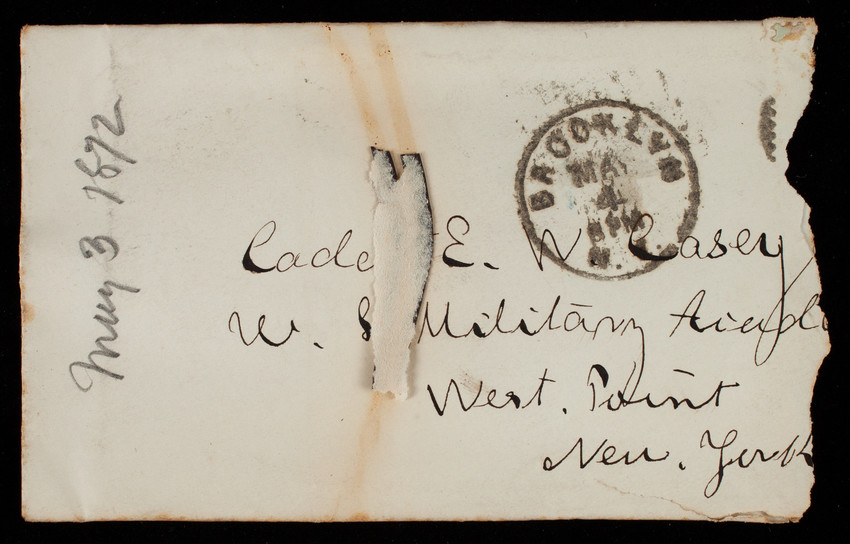 May 3 1872
BROOKLYN
MAY
4
N.Y.
Cade E. W. Casey
W. S Military Acad
West. Point
New. York